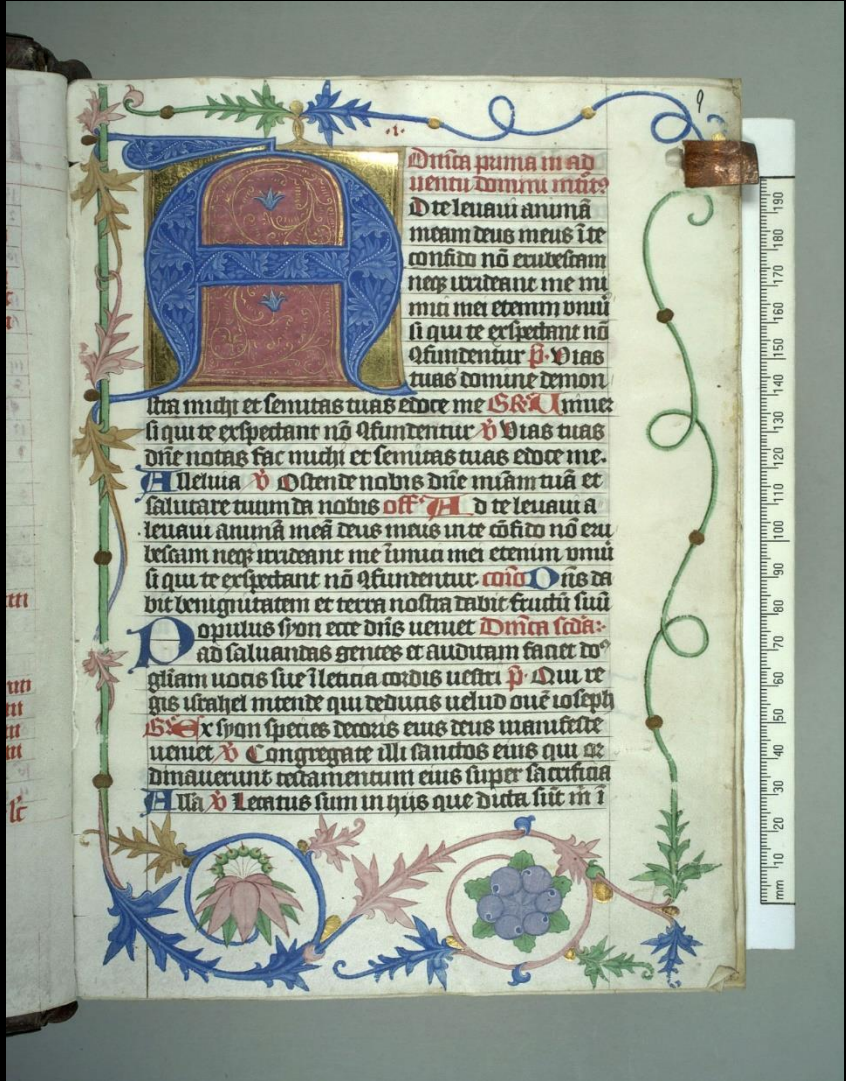 9
.1.
Dnica prima in ad
uentu domini introitus
AD te leuaui animā
meam deus meus ī te
confido nō erubescam
neqꝫ irrideant me ini
mici mei etenim vniū
si qui te exspectant nō
ꝯfundentur p̄. Vias
tuas domine demon
stra michi et semitas tuas edoce me GR̄ Vniuer
si qui te exspectant nō ꝯfundentur ꝟ Vias tuas
dn̄e notas fac michi et semitas tuas edoce me.
Alleluia ꝟ Ostende nobis dn̄e mīam tuā et
salutare tuum da nobis off Ad te leuaui a
leuaui animā meā deus meus in te cōfido nō eru
bescam neqꝫ irrideant me īimici mei etenim vniū
si qui te exspectant nō ꝯfundentur cōīo Dn̄s da
bit benignitatem et terra nostra dabit fructū suū
Populus syon ecce dn̄s ueniet Dn̄ica scd̄a
ad saluandas gentes et auditam faciet do
gliam uocis sue ī leticia cordis uestri p̄. Qui re
gis israhel intende qui deducis uelud ouē ioseph
GR̄ Ex syon species decoris eius deus manifeste
ueniet ꝟ Congregate illi sanctos eius qui or
dinauerunt testamentum eius super sacrificia
Alla ꝟ Letatus sum in hijs que dicta sūt m̄ ī
190
180
170
160
150
140
130
120
110
100
90
80
70
60
50
40
30
20
10
mm